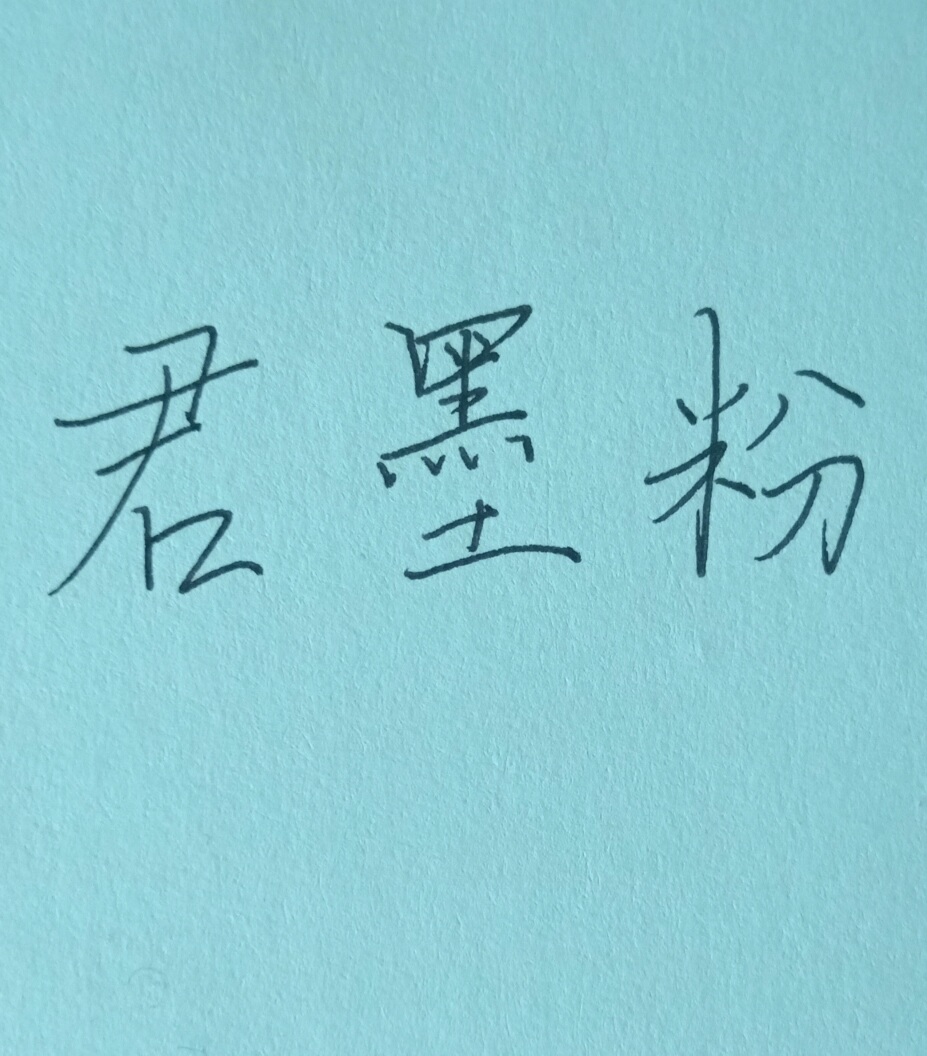 君墨粉